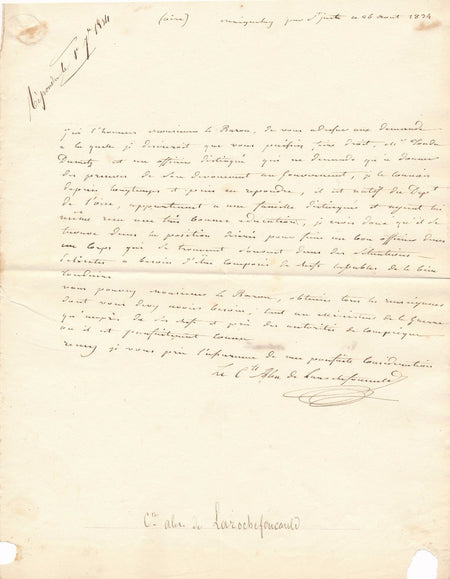 (oise) maignelay par St juste ce 26 aout 1834
Répondu le 1er 7bre 1834
j'ai l'honneur monsieur le Baron, de vous adresser une demande
à la quelle je désirerois que vous puissiez faire droit, Mr
est un officier distingué qui ne demande qu'à donner
des preuves de son dévouement au Gouvernement, je le connais
depuis longtemps et puis en répondre, il est natif du Dept
de l'oise, appartenant a une famille distinguée et ayant lui
même reçu une très bonne education, je crois donc qu'il se
trouve dans la position désirée pour faire un bon officier dans
un Corps qui se trouvant souvent dans des situations
délicates a besoin d'être composé de chefs capables de le bien
conduire
vous pouvez monsieur le Baron, obtenir tous les renseignemens
dont vous devez avoir besoin, tant au Ministère de la Guerre
qu'auprès de ses chefs et près des autorités de compiegne
ou il est parfaitement connu
recevez je vous prie l'assurance de ma parfaite Considération
Le Cte Alex de Larochefoucauld
Cte alex. de Larochefoucauld